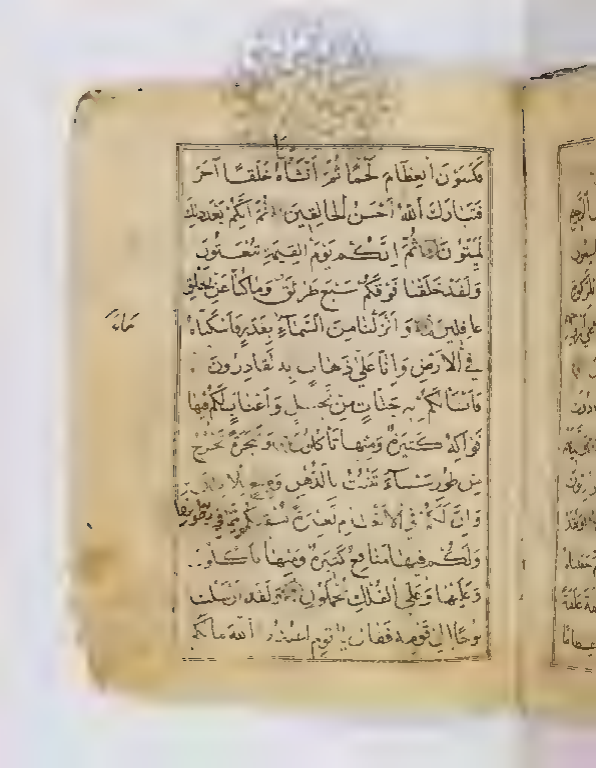 فَكَسَوْنَا الْعِظَامَ لَحْمًا ثُمَّ أَنْشَأْنَاهُ خَلْقًا آخَرَ
فَتَبَارَكَ اللَّهُ أَحْسَنُ الْخَالِقِينَ ثُمَّ إِنَّكُمْ بَعْدَ ذَلِكَ
لَمَيِّتُونَ ثُمَّ إِنَّكُمْ يَوْمَ الْقِيَمَةِ تُبْعَثُونَ
وَلَقَدْ خَلَقْنَا فَوْقَكُمْ سَبْعَ طَرَائِقَ وَمَا كُنَّا عَنِ الْخَلْقِ
غَافِلِينَ وَأَنْزَلْنَا مِنَ السَّمَاءِ بِقَدَرٍ فَأَسْكَنَّاهُ
مَاءً
فِي الْأَرْضِ وَإِنَّا عَلَى ذَهَابٍ بِهِ لَقَادِرُونَ
فَأَنْشَأْنَا لَكُمْ بِهِ جَنَّاتٍ مِنْ نَخِيلٍ وَأَعْنَابٍ لَكُمْ فِيهَا
فَوَاكِهُ كَثِيرَةٌ وَمِنْهَا تَأْكُلُونَ وَشَجَرَةً تَخْرُجُ
مِنْ طُورِ سَيْنَاءَ تَنْبُتُ بِالدُّهْنِ وَصِبْغٍ
وَإِنَّ لَكُمْ فِي الْأَنْعَامِ لَعِبْرَةً نُسْقِيكُمْ مِمَّا فِي بُطُونِهَا
وَلَكُمْ فِيهَا مَنَافِعُ كَثِيرَةٌ وَمِنْهَا تَأْكُلُونَ
وَعَلَيْهَا وَعَلَى الْفُلْكِ تُحْمَلُونَ وَلَقَدْ أَرْسَلْنَا
نُوحًا إِلَى قَوْمِهِ فَقَالَ يَا قَوْمِ اعْبُدُوا اللَّهَ مَا لَكُمْ